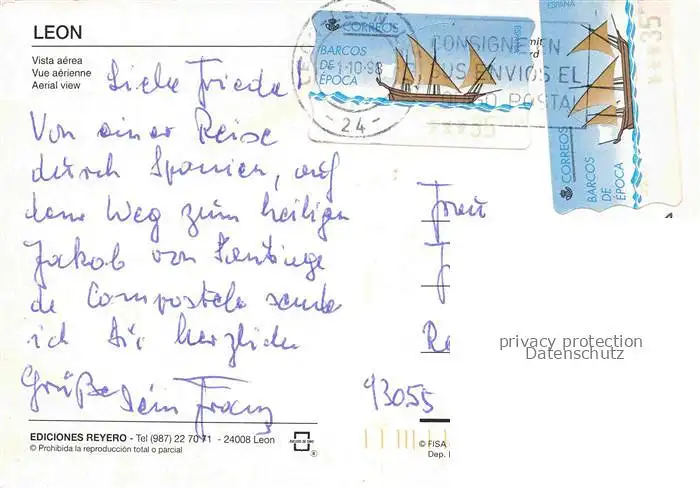 LEON
Vista aérea
Vue aérienne
Aerial view
Liebe Frieda!
Von einer Reise
durch Spanien, auf
dem Weg zum heiligen
Jakob von Santiago
de Compostela sende
ich Dir herzliche
Grüße Dein Franz
EDICIONES REYERO - Tel (987) 22 70 71 - 24008 Leon
© Prohibida la reproducción total o parcial
CORREOS
BARCOS
DE
EPOCA
LEON
1-10-98
- 24 -
CONSIGNE EN
SUS ENVIOS EL
POSTAL
***35
ESPAÑA
CORREOS
BARCOS
DE
EPOCA
***35
Frau
93055
privacy protection
Datenschutz
© FISA
Dep.